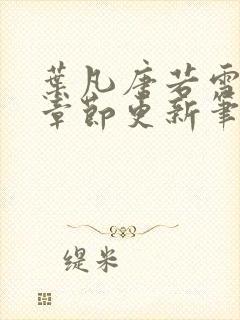 葉凡唐若雪
章節更新筆
缇米